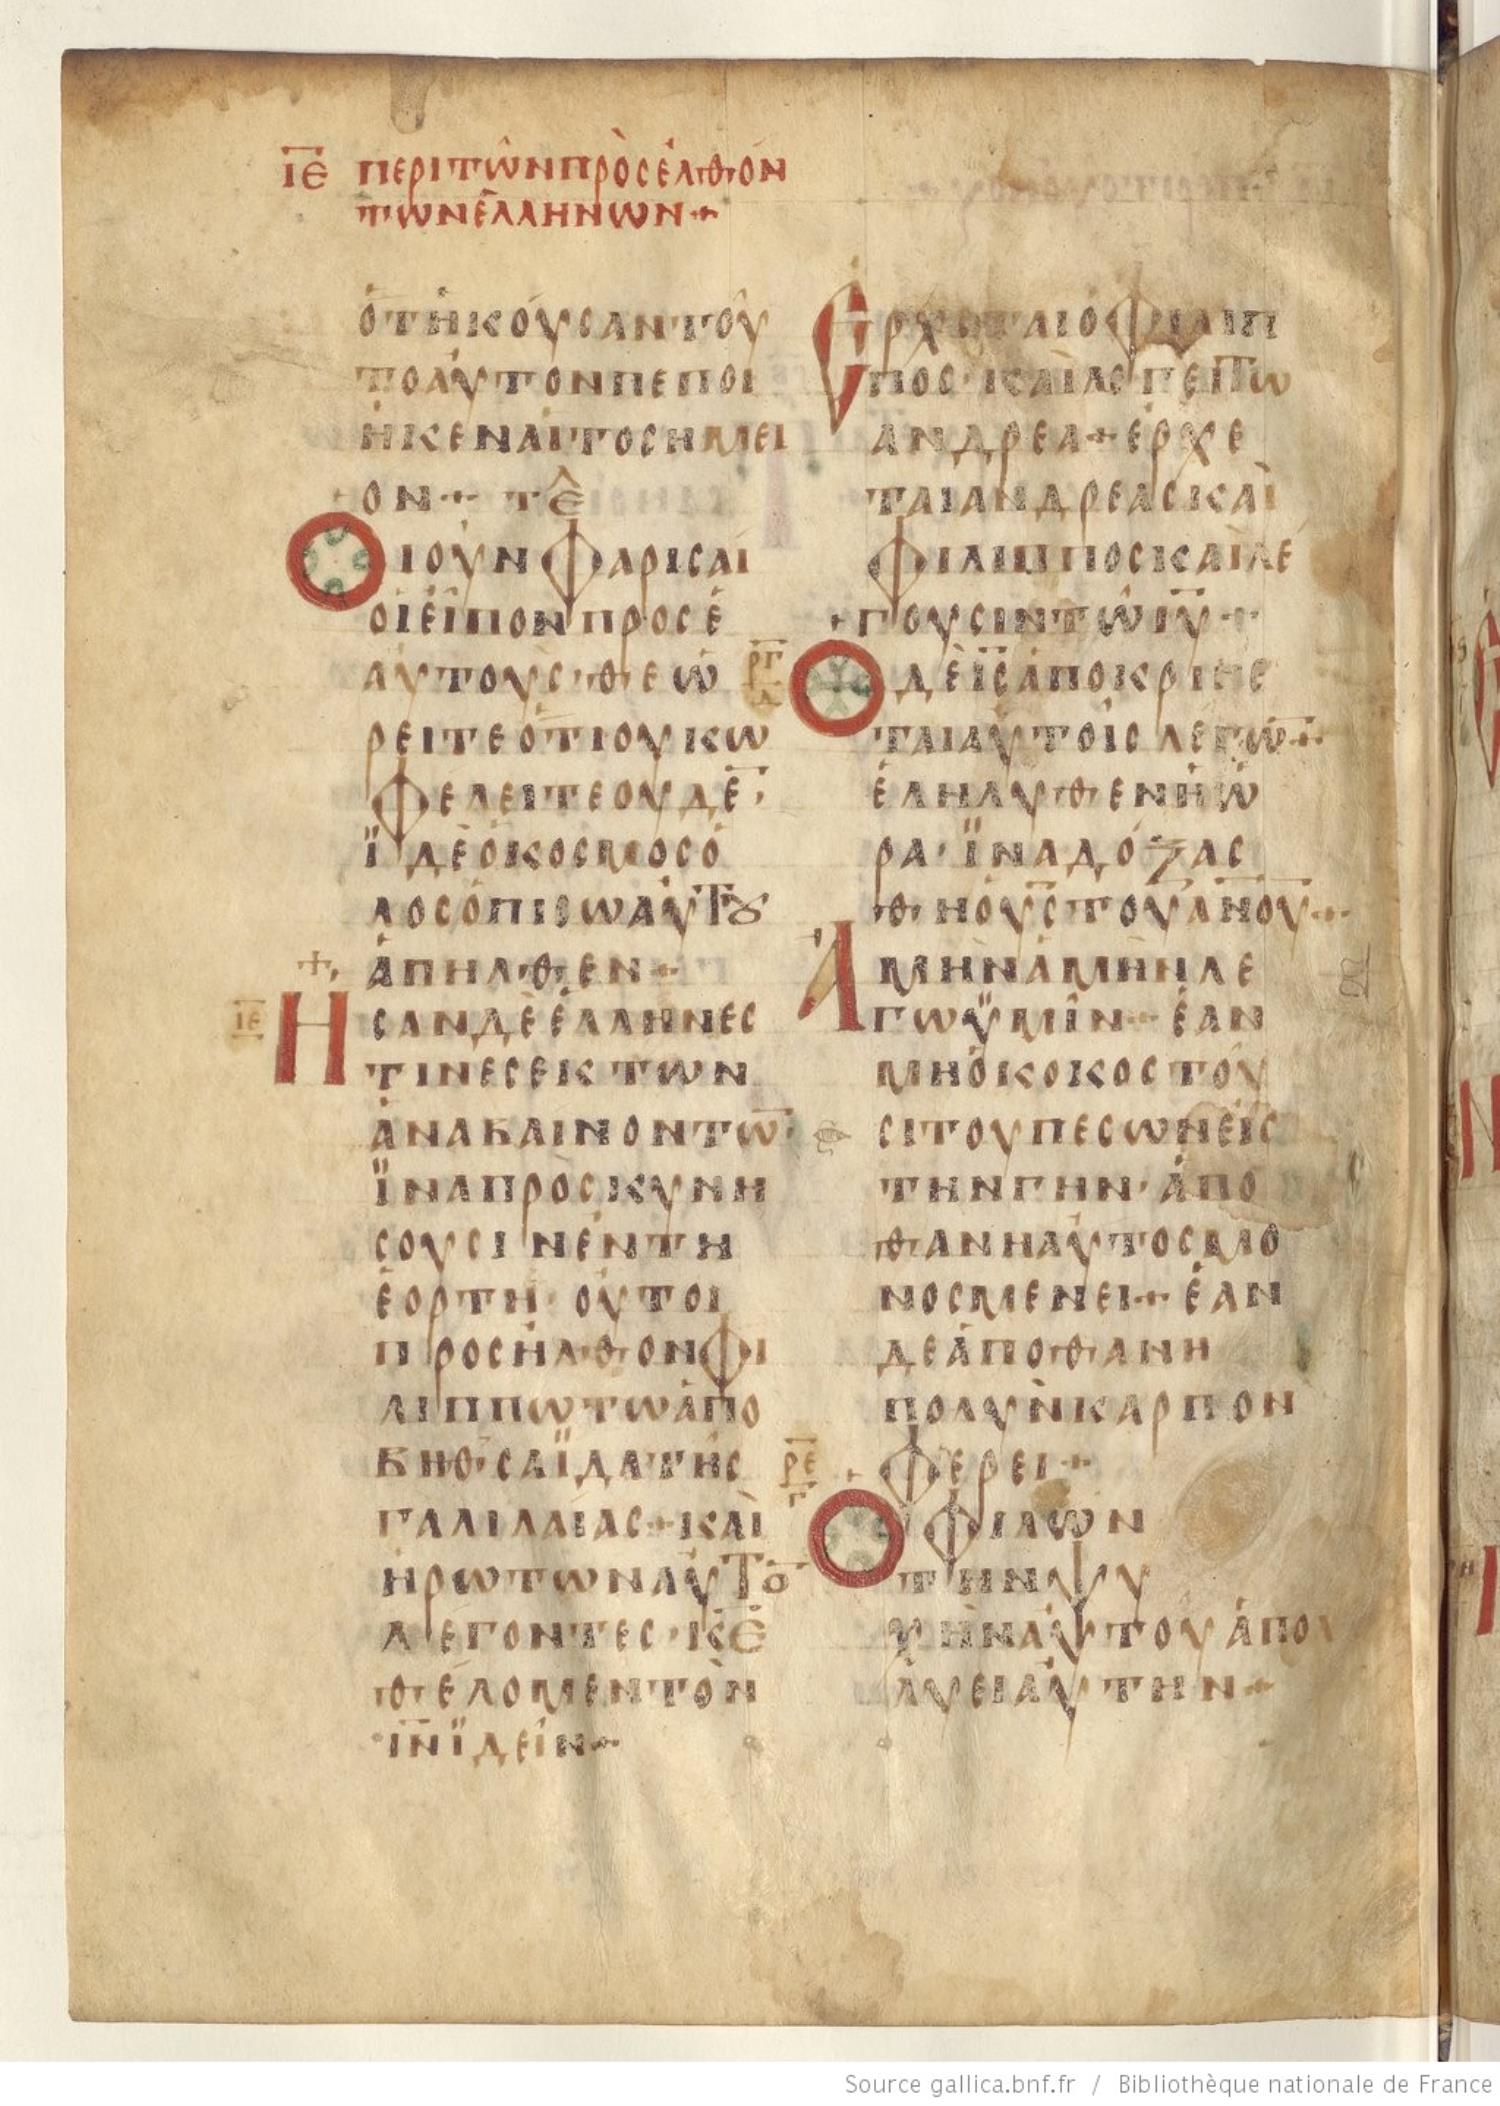 ΙΕ ΠΕΡΙΤΩ͂ΝΠΡὸCΕΛΘΌΝ
ΤΩΝἙΛΛΗΝΩΝ+
ὅΤΗΚΟΥCΑΝΤΟΥ
ΤΟΑΥΤΟΝΠΕΠΟΙ
ΗΚΕΝΑΙΤΟCΗΜΕΙ
ΟΝ+ ΤΕ
ΟΙΟΥΝΦΑΡΙCΑΙ
ΟΙΕΙΠΟΝΠΡΟCΕ
ΑΥΤΟΥC·ΘΕΩ
ΡΕΙΤΕΟΤΙΟΥΚΩ
ΦΕΛΕΙΤΕΟΥΔΕ̅
ΪΔΕΟΚΟCΜΟCΟ
ΛΟCΟΠΙCΩΑΥΤȢ
ΑΠΗΛΘΕΝ+
ΙΕ ΗCΑΝΔΕΕΛΛΗΝΕC
ΤΙΝΕCΕΚΤΩΝ
ΑΝΑΒΑΙΝΟΝΤΩ̅
ΪΝΑΠΡΟCΚΥΝΗ
CΟΥCΙΝΕΝΤΗ
ΕΟΡΤΗ·ΟΥΤΟΙ
ΠΡΟCΗΛΘΟΝΦΙ
ΛΙΠΠΩΤΩΑΠΟ
ΒΗΘCΑΪΔΑΤΗC
ΓΑΛΙΛΑΙΑC+ΚΑΙ
ΗΡΩΤΩΝΑΥΤΟ̅
ΛΕΓΟΝΤΕC·Κ̅Ε̅
ΘΕΛΟΜΕΝΤΟΝ
Ι̅Ν̅ΪΔΕΙΝ+
ΕΡΧΕΤΑΙΟΦΙΛΙΠ
ΠΟC·ΚΑΙΛΕΓΕΙΤΩ
ΑΝΔΡΕΑ+ΕΡΧΕ
ΤΑΙΑΝΔΡΕΑCΚΑΙ
ΦΙΛΙΠΠΟCΚΑΙΛΕ
ΓΟΥCΙΝΤΩΙ̅Υ̅+
ΡΓ Δ ΟΔΕΙ̅C̅ΑΠΟΚΡΙΝΕ
ΤΑΙΑΥΤΟΙCΛΕΓΩ̅+
ΕΛΗΛΥΘΕΝΗΩ
ΡΑ·ΪΝΑΔΟΞΑC
ΘΗΟΥ̅C̅ΤΟΥΑ̅Ν̅Ο̅Υ̅+
ΑΜΗΝΑΜΗΝΛΕ
ΓΩΥΜΙΝ+ΕΑΝ
ΜΗΟΚΟΚΟCΤΟΥ
CΙΤΟΥΠΕCΩΝΕΙC
ΤΗΝΓΗΝ·ΑΠΟ
ΘΑΝΗΑΥΤΟCΜΟ
ΝΟCΜΕΝΕΙ+ΕΑΝ
ΔΕΑΠΟΘΑΝΗ
ΠΟΛΥΝΚΑΡΠΟΝ
ΦΕΡΕΙ+
ΡΕ Γ ΟΦΙΛΩΝ
ΤΗΝΨΥ
ΧΗΝΑΥΤΟΥΑΠΟ
ΛΥΕΙΑΥΤΗΝ+
Source gallica.bnf.fr / Bibliothèque nationale de France